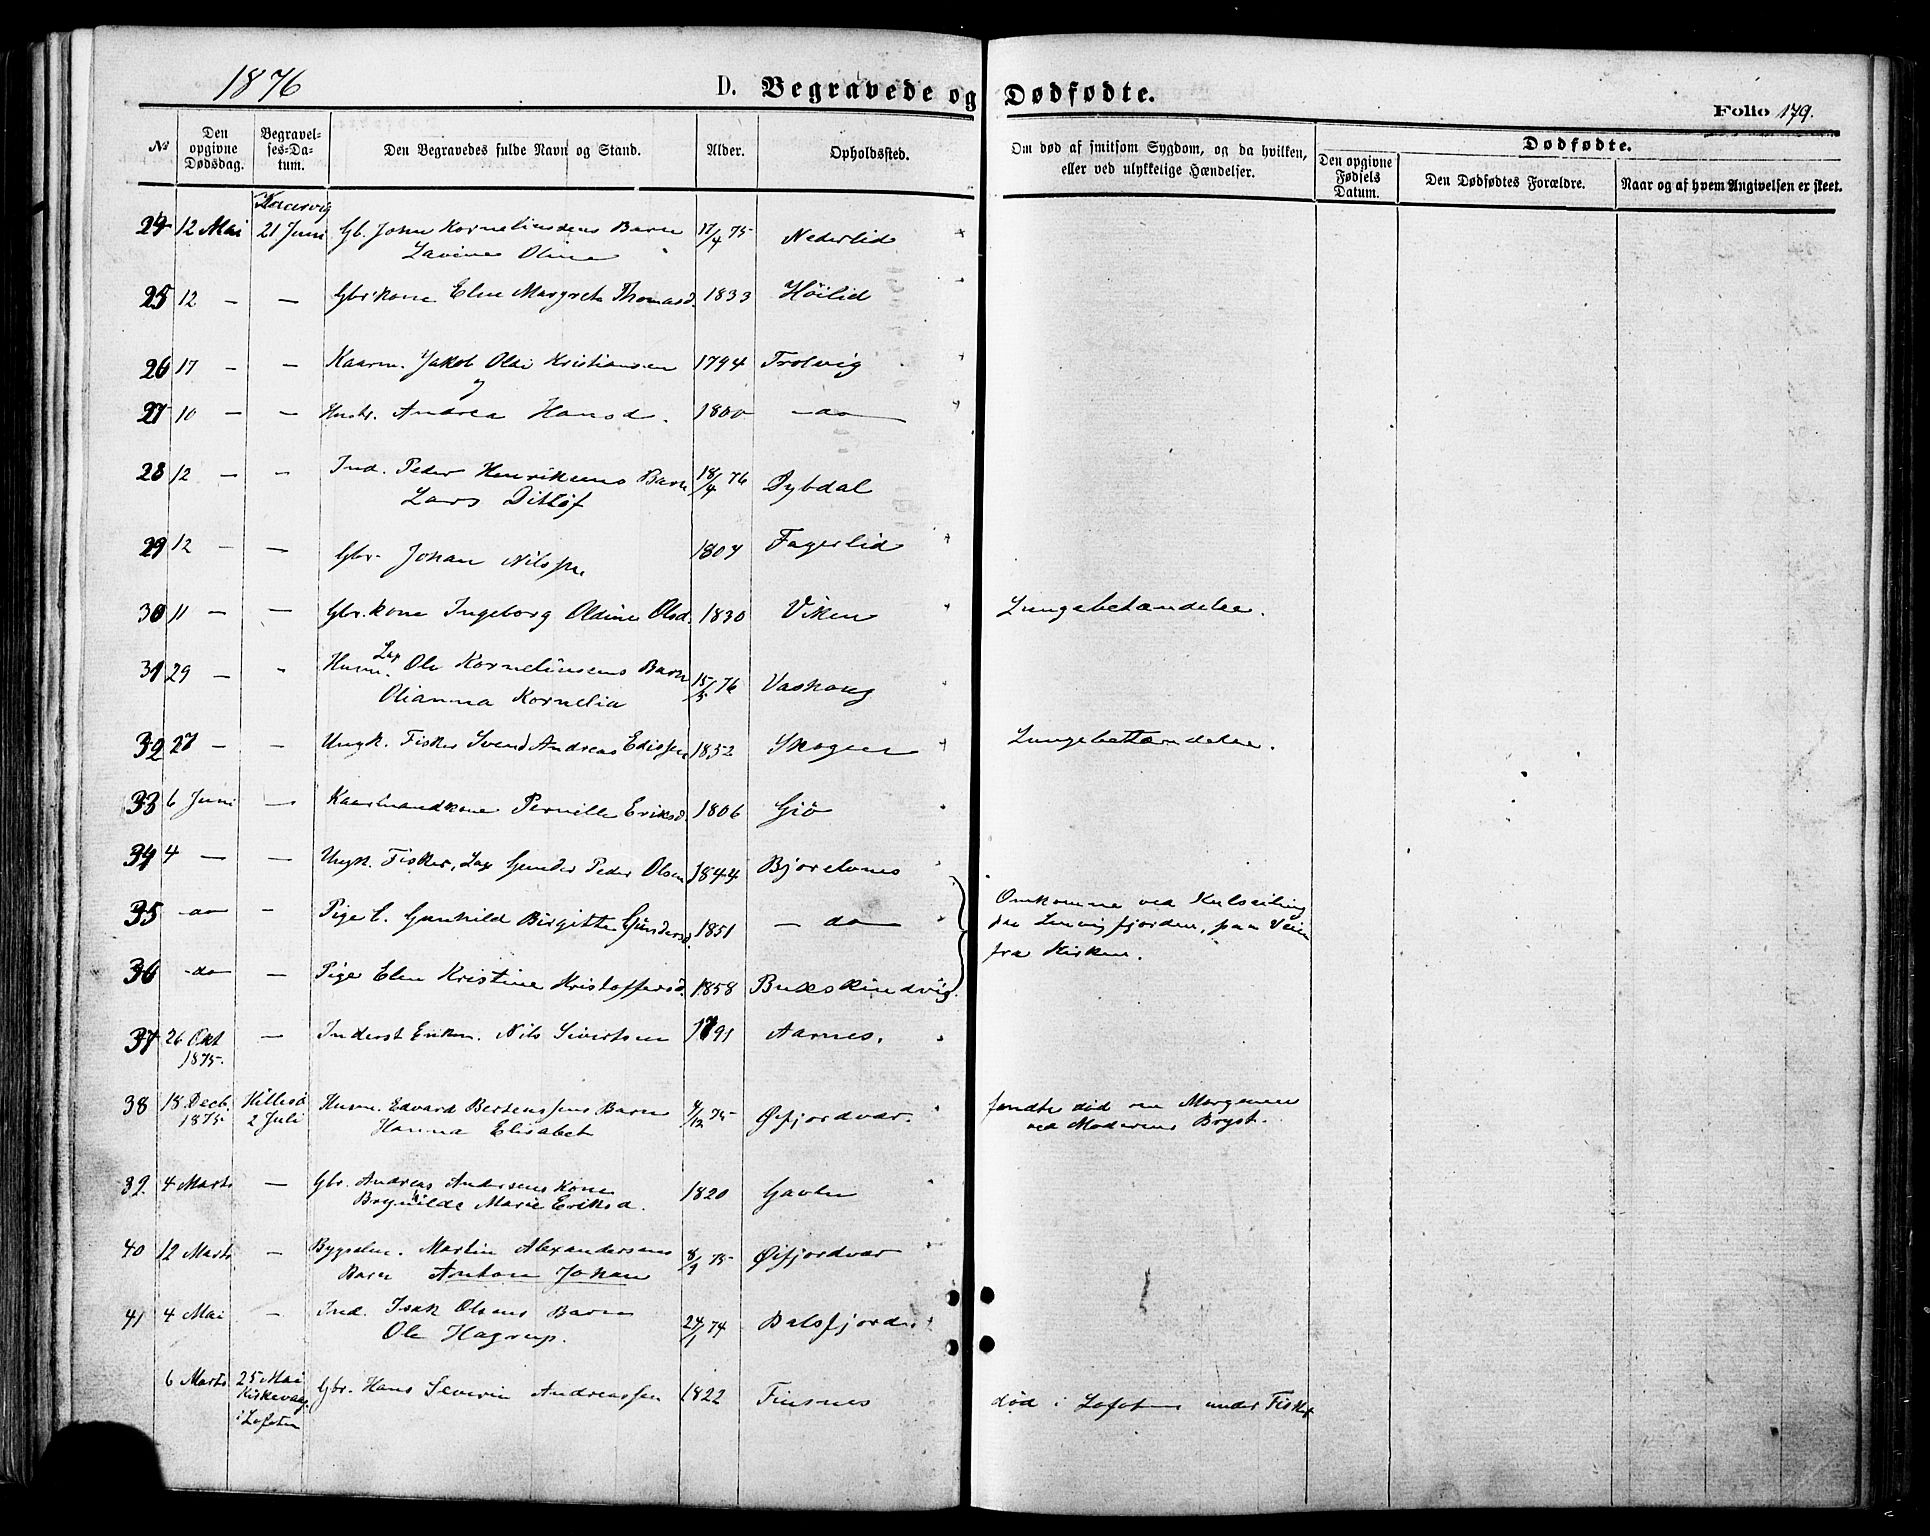 1876
D. Begravede og Dødfødte.
Folio 179.
№
Den opgivne Dødsdag.
Begravelses-Datum.
Den Begravedes fulde Navn og Stand.
Alder.
Opholdssted.
Om død af smitsom Sygdom, og da hvilken, eller ved ulykkelige Hændelser.
Dødfødte.
Den opgivne Fødsels Datum.
Den Dødfødtes Forældre.
Naar og af hvem Angivelsen er skeet.
24 12 Mai 21 Juni Gb. Johan Korneliusens Barn 17/4 75 Nederlid
Lavine Oline
25 12 — — Gbr.kone Elen Margrete Thomasd. 1833 Höilid
26 17 — — Kaarm. Jakob Olai Kristiansen 1794 Trolvig
27 10 — — Hustr. Andrea Hansd. 1800 — do —
28 12 — — Ind. Peder Henriksens Barn 18/4 76 Dybdal
Lars Ditlöf
29 12 — — Gbr. Johan Nilssen 1804 Fagerlid
30 11 — — Gbr.kone Ingeborg Oldine Olsd. 1830 Viken Lungebetændelse.
31 29 — - Husm. Lap Ole Korneliusens Barn 15/5 76 Vashaug
Olianna Kornelia
32 27 — — Ungk. Fisker Svend Andreas Edissen 1852 Skogen Lungebetændelse.
33 6 Juni — Kaarmandkone Pernille Eriksd. 1806 Giö
34 4 — — Ungk. Fisker, Lap Gunder Peder Olsen 1844 Bjorelvnes
35 - do - Pige L. Gunhild Birgitte Gundersd. 1851 — do — Omkomne ved Kulseiling
paa Lenvigfjorden, paa Veien
fra Kirken.
36 - do — Pige Elen Kristine Kristoffersd. 1858 Bukskindvig
37 26 Okt 1875. — Inderst Enkem. Nils Sivertsen 1791 Aarnes.
38 18 Decb. 1875 Hillesö 2 Juli Husm. Edvard Bertenssens Barn 4/12 75 Øfjordvær. fandtes død om Morgenen
Hanna Elisabet ved Moderens Bryst.
39. 4 Marts — Gbr. Andreas Andersens Kone 1820 Gavlen
Brynhilde Marie Eriksd.
40 12 Marts — Bygselm. Martin Alexandersens 8/9 75 Øifjordvær
Barn Anton Johan
41 4 Mai - Ind. Isak Olsens Barn 24/1 74 Balsfjorden
Ole Hagerup.
6 Marts 25 Mai Kirkevaag i Lofoten Gbr. Hans Severin Andreassen 1822 Finsnes død i Lofoten under Fisket